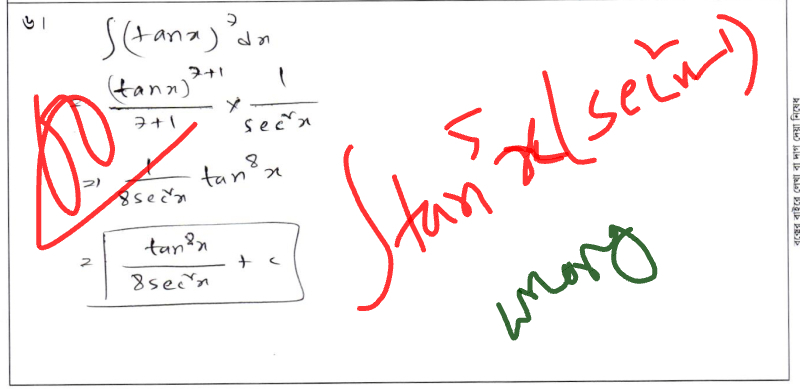 ৬।
∫(tanx)⁷dx
= (tanx)⁷⁺¹/7+1 × 1/secʳx
=> 1/8secʳx tan⁸x
= tan⁸x/8secʳx + c
∫tan⁵x(secʳx-1)
wrong
বক্সের বাইরে লেখা বা দাগ দেয়া নিষেধ